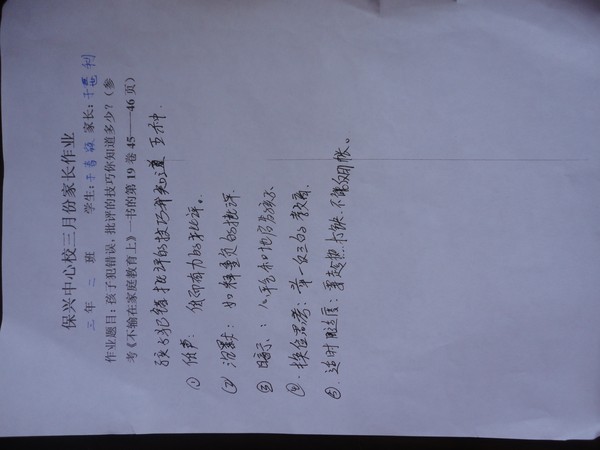 保兴中心校三月份家长作业
三年二班 学生：于 家长：于
作业题目：孩子犯错误，批评的技巧你知道多少？（参
考《不输在家庭教育上》一书的第19卷45——46页）
孩子犯错批评的技巧我知道五种.
① 低声：低而有力的批评。
② 沉默：如释重负的批评.
③ 暗示：心平气和地启发孩子
④ 换位思考：举一反三的教育
⑤ 适时适度：要趁热打铁.不能翻旧帐。